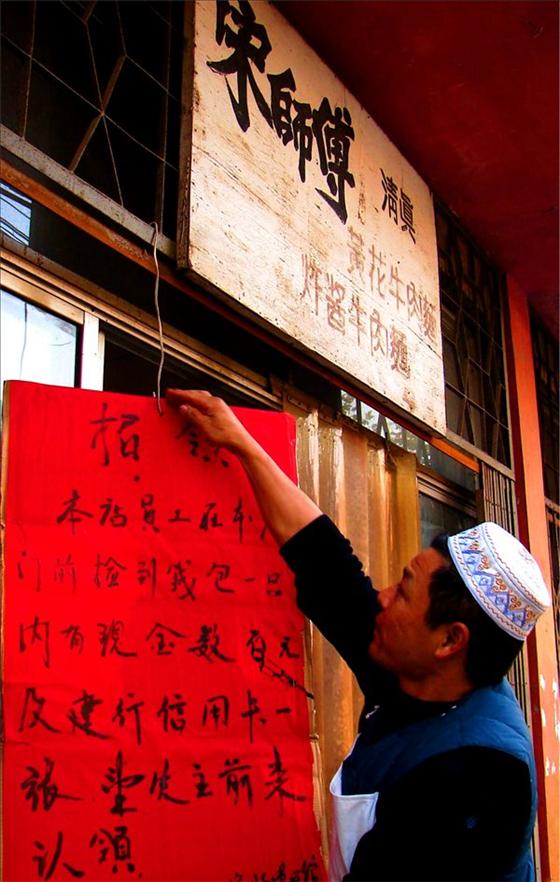 宋師傅
清真
黃花牛肉麵
炸酱牛肉麵
招領
本店員工在本
门前撿到钱包一只
内有現金數百元
及建行信用卡一
張望失主前来
认領